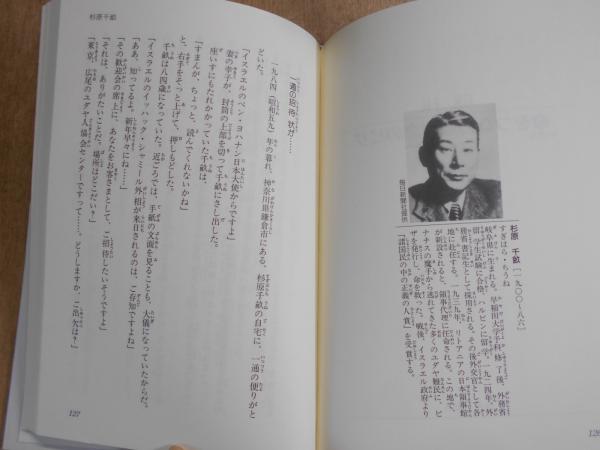 杉原 千畝 [一九〇〇～八六]
すぎはら・ちうね
岐阜県に生まれる。早稲田大学予科修了後、外務省
留学生試験に合格、ハルビンに留学。一九二四年、外
務省書記生として採用される。その後外交官として各
地に赴任する。一九三九年、リトアニアの日本領事館
が新設されると、領事代理に任命される。この地で、
ナチスの魔手から逃れてきた多くのユダヤ難民に、ビ
ザを発行し、命を救った。戦後、イスラエル政府より
「諸国民の中の正義の人賞」を受賞する。
毎日新聞社提供
126
一通の招待状が……
一九八四(昭和五九)年の暮れ、神奈川県鎌倉市にある、杉原千畝の自宅に、一通の便りがと
どいた。
「イスラエルのベン・ヨハナン日本大使からですよ」
妻の幸子が、封筒の上部を切って千畝にさし出した。
座いすにもたれかかっていた千畝は、
「すまんが、ちょっと、読んでくれないかね」
と、右手をそっと上げて、押しもどした。
千畝は八四歳になっていた。近ごろでは、手紙の文面を見ることも、大儀になっていたからだ。
「イスラエルのイッハック・シャミール外相が来日されるのは、ご存知ですよね」
「ああ、知ってるよ。新年早々にね……」
「その歓迎会の席上に、あなたをお客さまとして、ご招待したいそうですよ」
「それは、ありがたいことだ。場所はどこだい？」
「東京、広尾のユダヤ人協会センターですって……。どうしますか、ご出欠は？」
杉原千畝
127